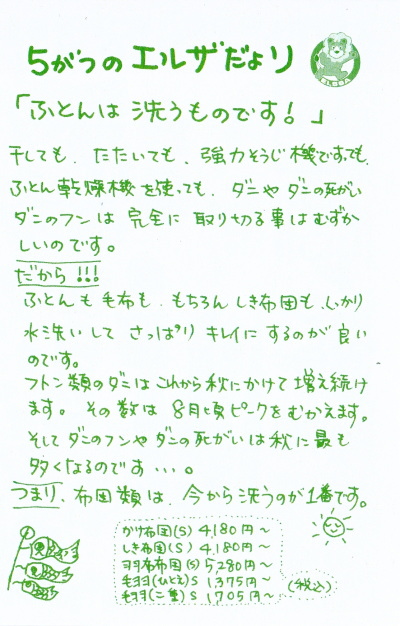 5がつの エルザだより
「ふとんは 洗うものです！」
干しても、たたいても、強力そうじ機ですっても、
ふとん乾燥機を使っても、ダニやダニの死がい
ダニのフンは 完全に 取り切る事はむずか
しいのです。
だから!!!
ふとんも毛布も、もちろん しき布団も、しっかり
水洗いして さっぱり キレイに するのが 良い
のです。
フトン類のダニはこれから秋にかけて 増え続け
ます。 その数は 8月頃ピークをむかえます。
そして ダニのフンやダニの死がいは 秋に 最も
多くなるのです・・・。
つまり、布団類は、今から洗うのが1番です。
かけ布団(S) 4,180円〜
しき布団(S) 4,180円〜
羽布団(S) 5,280円〜
毛羽(ひとえ)S 1,375円〜
毛羽(二重)S 1,705円〜
(税込)